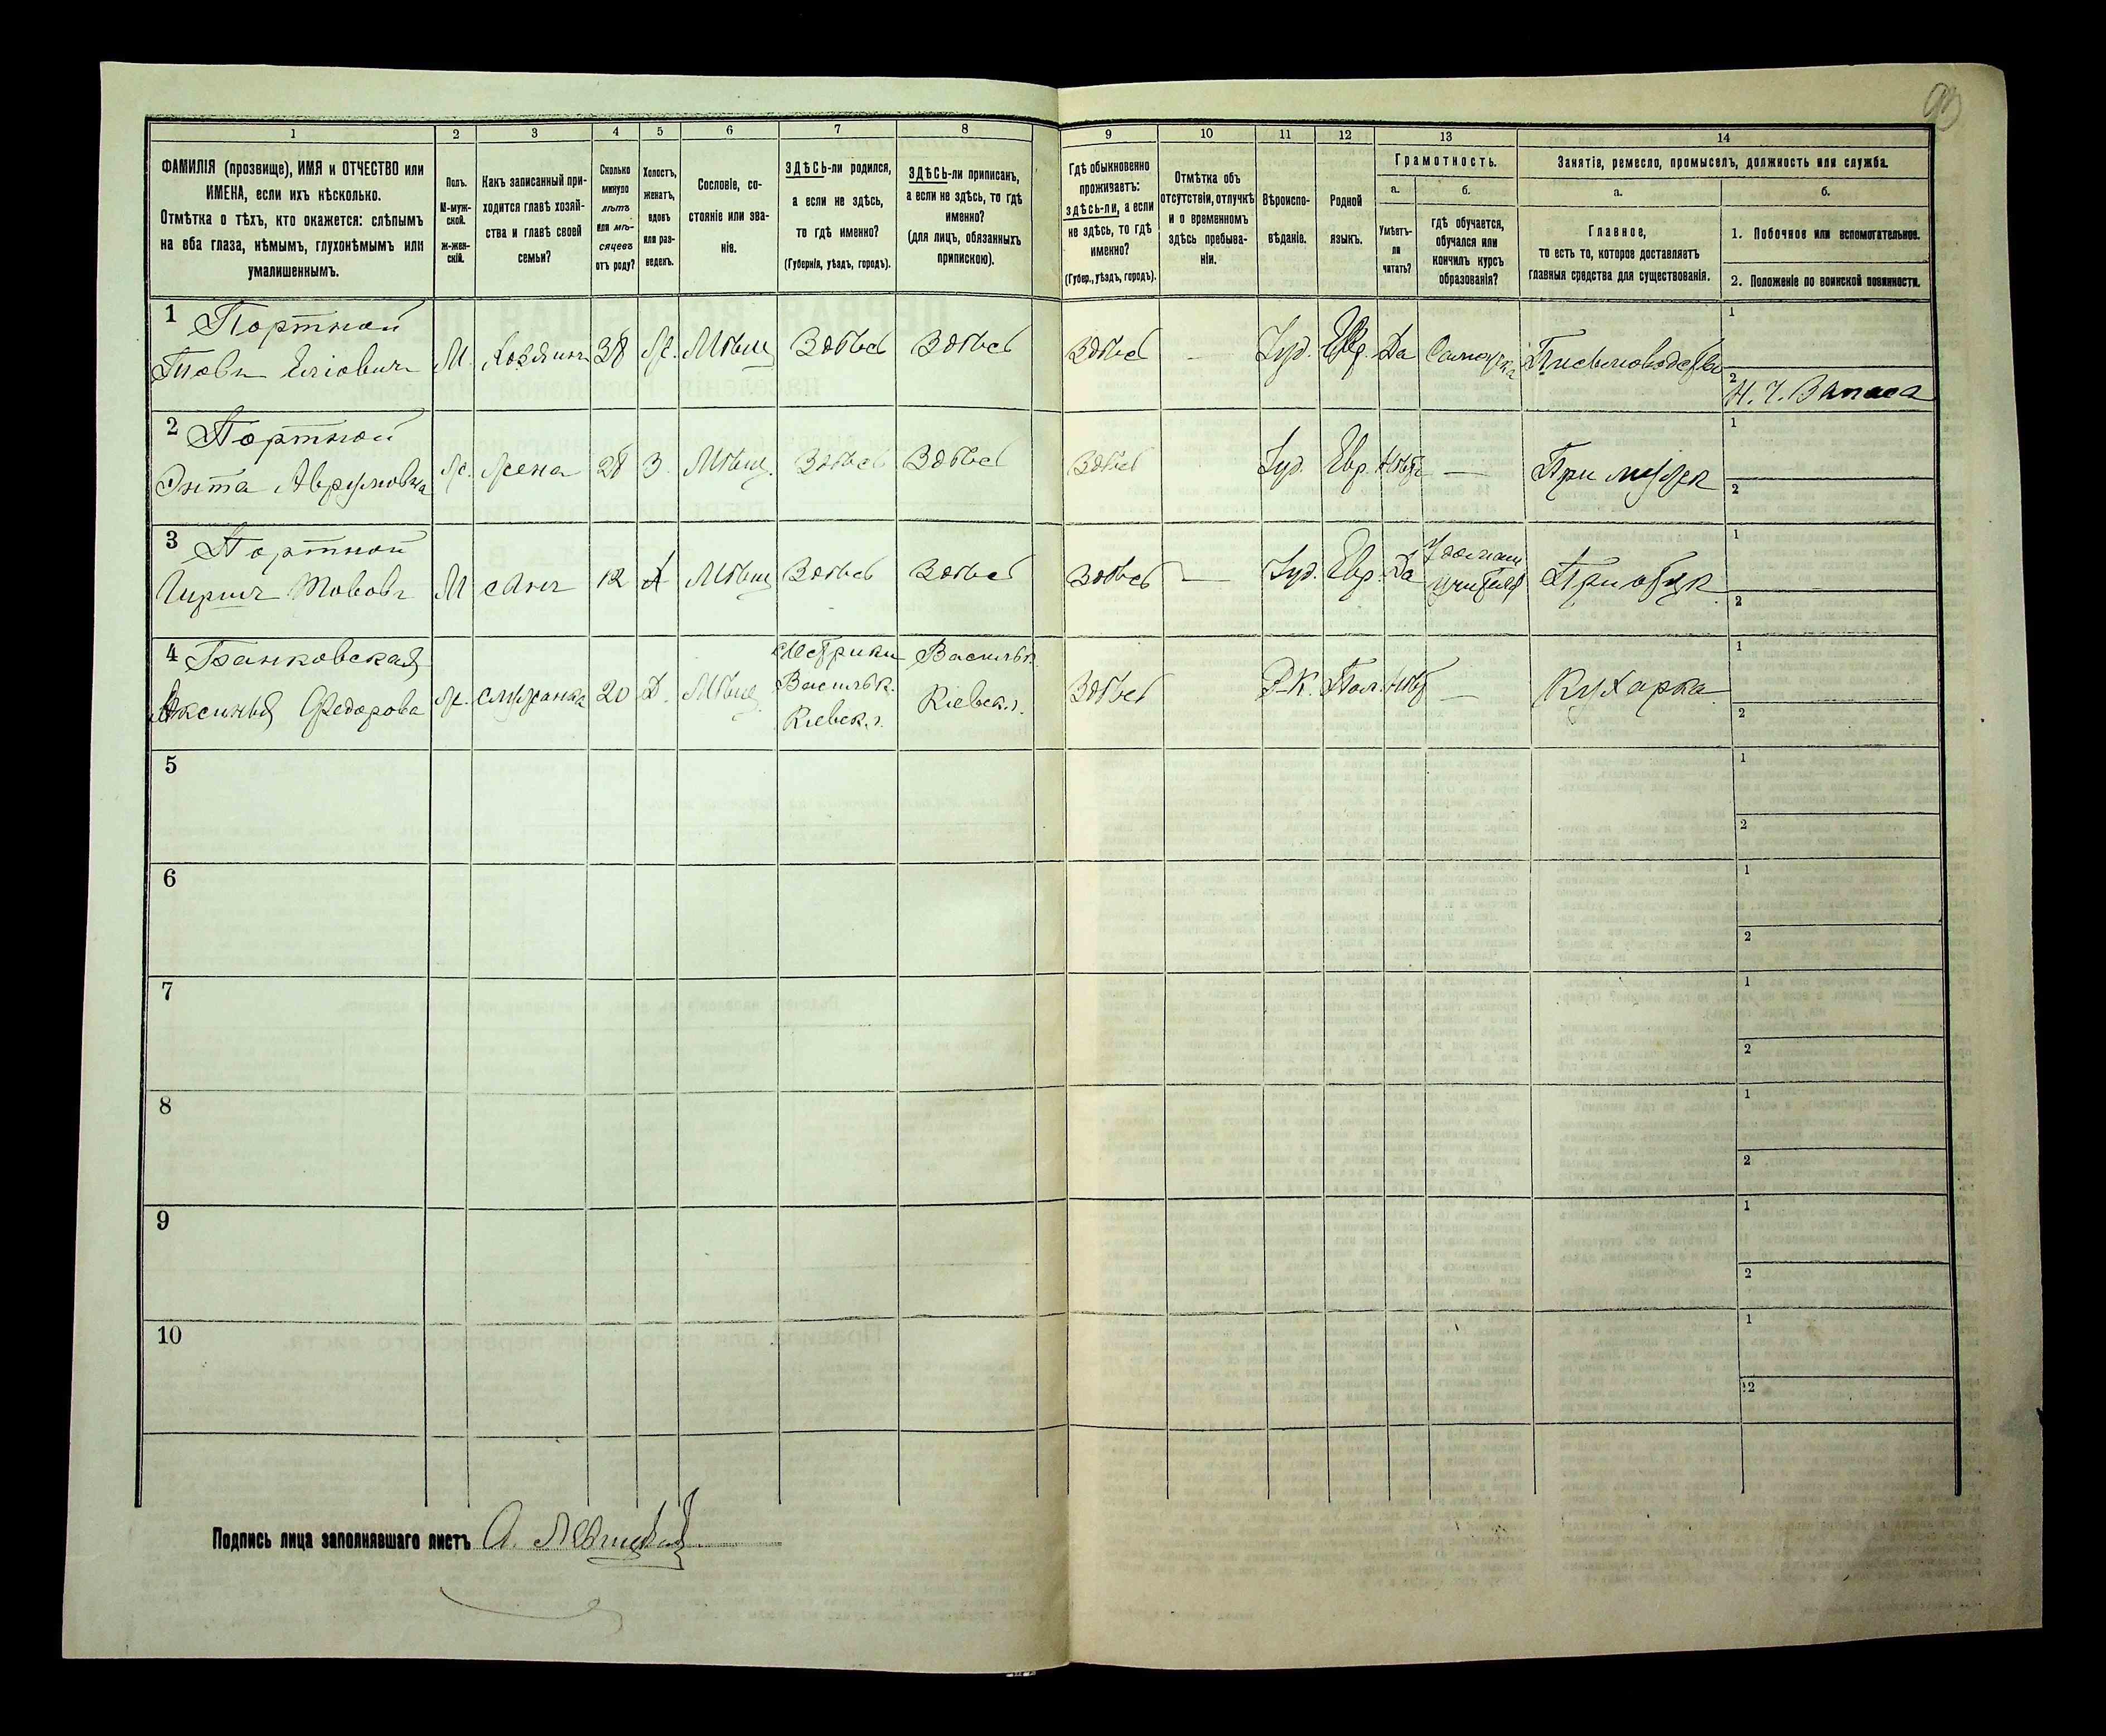 1
2
3
4
5
6
7
8
ФАМИЛІЯ (прозвище), ИМЯ и ОТЧЕСТВО или
ИМЕНА, если ихъ нѣсколько.
Отмѣтка о тѣхъ, кто окажется: слѣпымъ
на оба глаза, нѣмымъ, глухонѣмымъ или
умалишеннымъ.
Полъ.
М-муж-
ской.
ж-жен-
скій.
Какъ записанный при-
ходится главѣ хозяй-
ства и главѣ своей
семьи?
Сколько
минуло
лѣтъ
или мѣ-
сяцевъ
отъ роду?
Холостъ,
женатъ,
вдовъ
или раз-
веденъ.
Сословіе, со-
стояніе или зва-
ніе.
ЗДѢСЬ-ли родился,
а если не здѣсь,
то гдѣ именно?
(Губернія, уѣздъ, городъ).
ЗДѢСЬ-ли приписанъ,
а если не здѣсь, то гдѣ
именно?
(для лицъ, обязанныхъ
припискою).
9
10
11
12
13
14
Гдѣ обыкновенно
проживаетъ:
здѣсь-ли, а если
не здѣсь, то гдѣ
именно?
(Губер., уѣздъ, городъ).
Отмѣтка объ
отсутствіи, отлучкѣ
и о временномъ
здѣсь пребыва-
ніи.
Вѣроиспо-
вѣданіе.
Родной
языкъ.
Грамотность.
а.
б.
Умѣетъ-
ли
читать?
гдѣ обучается,
обучался или
кончилъ курсъ
образованія?
Занятіе, ремесло, промыселъ, должность или служба.
а.
б.
Главное,
то есть то, которое доставляетъ
главныя средства для существованія.
1. Побочное или вспомогательное.
2. Положеніе по воинской повинности.
1 Портной
Товъ Еліовичъ М. Хозяинъ 38 Ж. Мѣщ Здѣсь Здѣсь Здѣсь — Іуд. Евр. Да Письмоводство
1
2
2 Портной
Энта Аврумовна Ж. жена 28 З. Мѣщ. Здѣсь Здѣсь Здѣсь Іуд. Евр. Нѣтъ — При мужѣ
1
2
3 Портной
Товов М сынъ 12 Мѣщ Здѣсь Здѣсь Здѣсь — Іуд. Евр. Да При отцѣ
1
2
4 Банковская
Васильк.
Аксинья Федорова Ж. служанка 20 Д. Мѣщ Васильк. Кіевск. г. Здѣсь Р-К. Пол. Нѣтъ — Кухарка
Кіевск. г.
1
2
5
1
2
6
1
2
7
1
2
8
1
2
9
1
2
10
1
2
Подпись лица заполнявшаго листъ